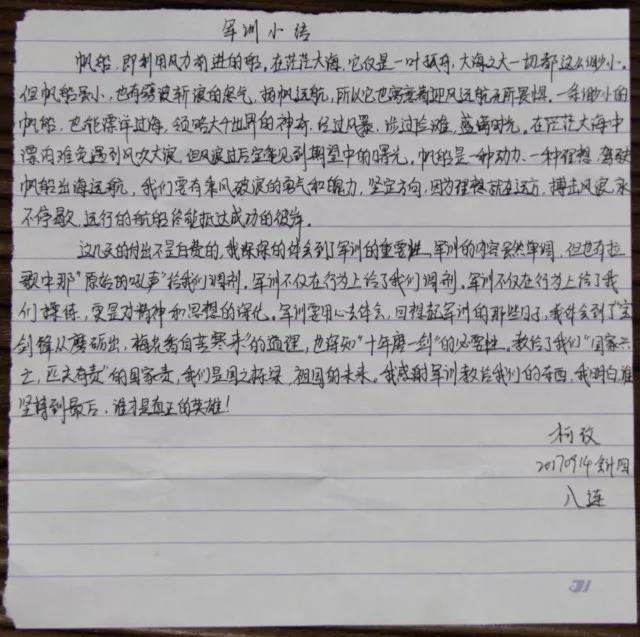 军训小结
帆船,即利用风力前进的船。在茫茫大海,它仅是一叶孤舟,大海之大一切都这么渺小。
但帆船虽小,也有劈波斩浪的勇气,扬帆远航,所以它也寓意着迎风远航无所畏惧。一条渺小的
帆船,也能漂洋过海,领略大千世界的神奇,经过风暴,涉过险滩,感满时光。在茫茫大海中
漂内难免遇到风吹大浪,但风浪过后定能见到期望中的曙光。帆船是一种动力,一种理想,驾驶
帆船出海远航,我们要有乘风破浪的勇气和能力,坚定方向,因为理想就在远方,搏击风浪,永
不停歇,远行的航船终能抵达成功的彼岸。
这几天的付出不是白费的,我深深的体会到了军训的重要性,军训的内容虽然单调,但也有拉
歌中那"原始的吼声"给我们调剂。军训不仅在行为上给了我们调剂。军训不仅在行为上给了我
们操练,更是对精神和思想的深化。军训要用心去体会,回想起军训的那些日子,我体会到了"宝
剑锋从磨砺出,梅花香自苦寒来"的道理,也深知"十年磨一剑"的必要性。教给了我们"国家兴
亡,匹夫有责"的国家责,我们是国之栋梁,祖国的未来。我感谢军训教给我们的东西,我明白谁
坚持到最后,谁才是真正的英雄!
柯
20170914
八连